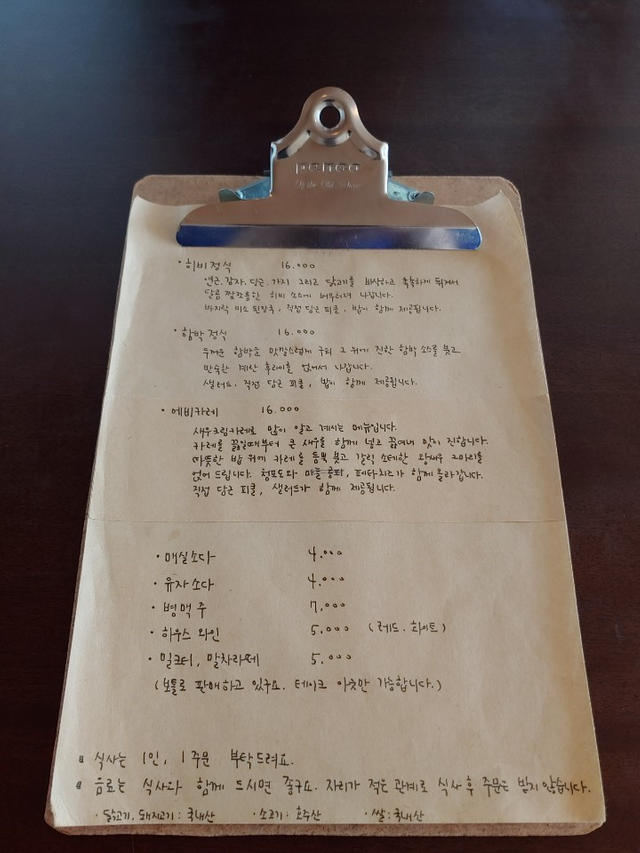 PENCO
· 히비정식 16.000
연근, 감자, 당근, 가지 그리고 닭고기를 바삭하고 촉촉하게 튀겨서
달콤 짭쪼롬한 히비 소스에 버무려져 나갑니다.
바지락 미소 된장국, 직접 담근 피클, 밥이 함께 제공됩니다.
· 함박정식 16.000
두꺼운 함박을 맛깔스럽게 구워 그 위에 진한 함박 소스를 붓고
반숙한 계란 후라이를 얹어서 나갑니다.
샐러드, 직접 담근 피클, 밥이 함께 제공됩니다.
· 에비카레 16.000
새우크림카레로 많이 알고 계시는 메뉴입니다.
카레를 끓일때부터 큰 새우를 함께 넣고 끓여내 맛이 진합니다.
따뜻한 밥 위에 카레를 듬뿍 붓고 갈릭 소테한 왕새우 2마리를
얹어 드립니다. 청포도와 마늘 콩피, 페타치즈가 함께 올라갑니다.
직접 담근 피클, 샐러드가 함께 제공됩니다.
· 매실소다 4.000
· 유자소다 4.000
· 병맥주 7.000
· 하우스 와인 5.000 (레드. 화이트)
· 밀크티, 말차라떼 5.000
(보틀로 판매하고 있구요. 테이크 아웃만 가능합니다.)
식사는 1인, 1주문 부탁드려요.
음료는 식사와 함께 드시면 좋구요. 자리가 적은 관계로 식사 후 주문은 받지 않습니다.
· 닭고기, 돼지고기: 국내산 · 소고기: 호주산 · 쌀: 국내산